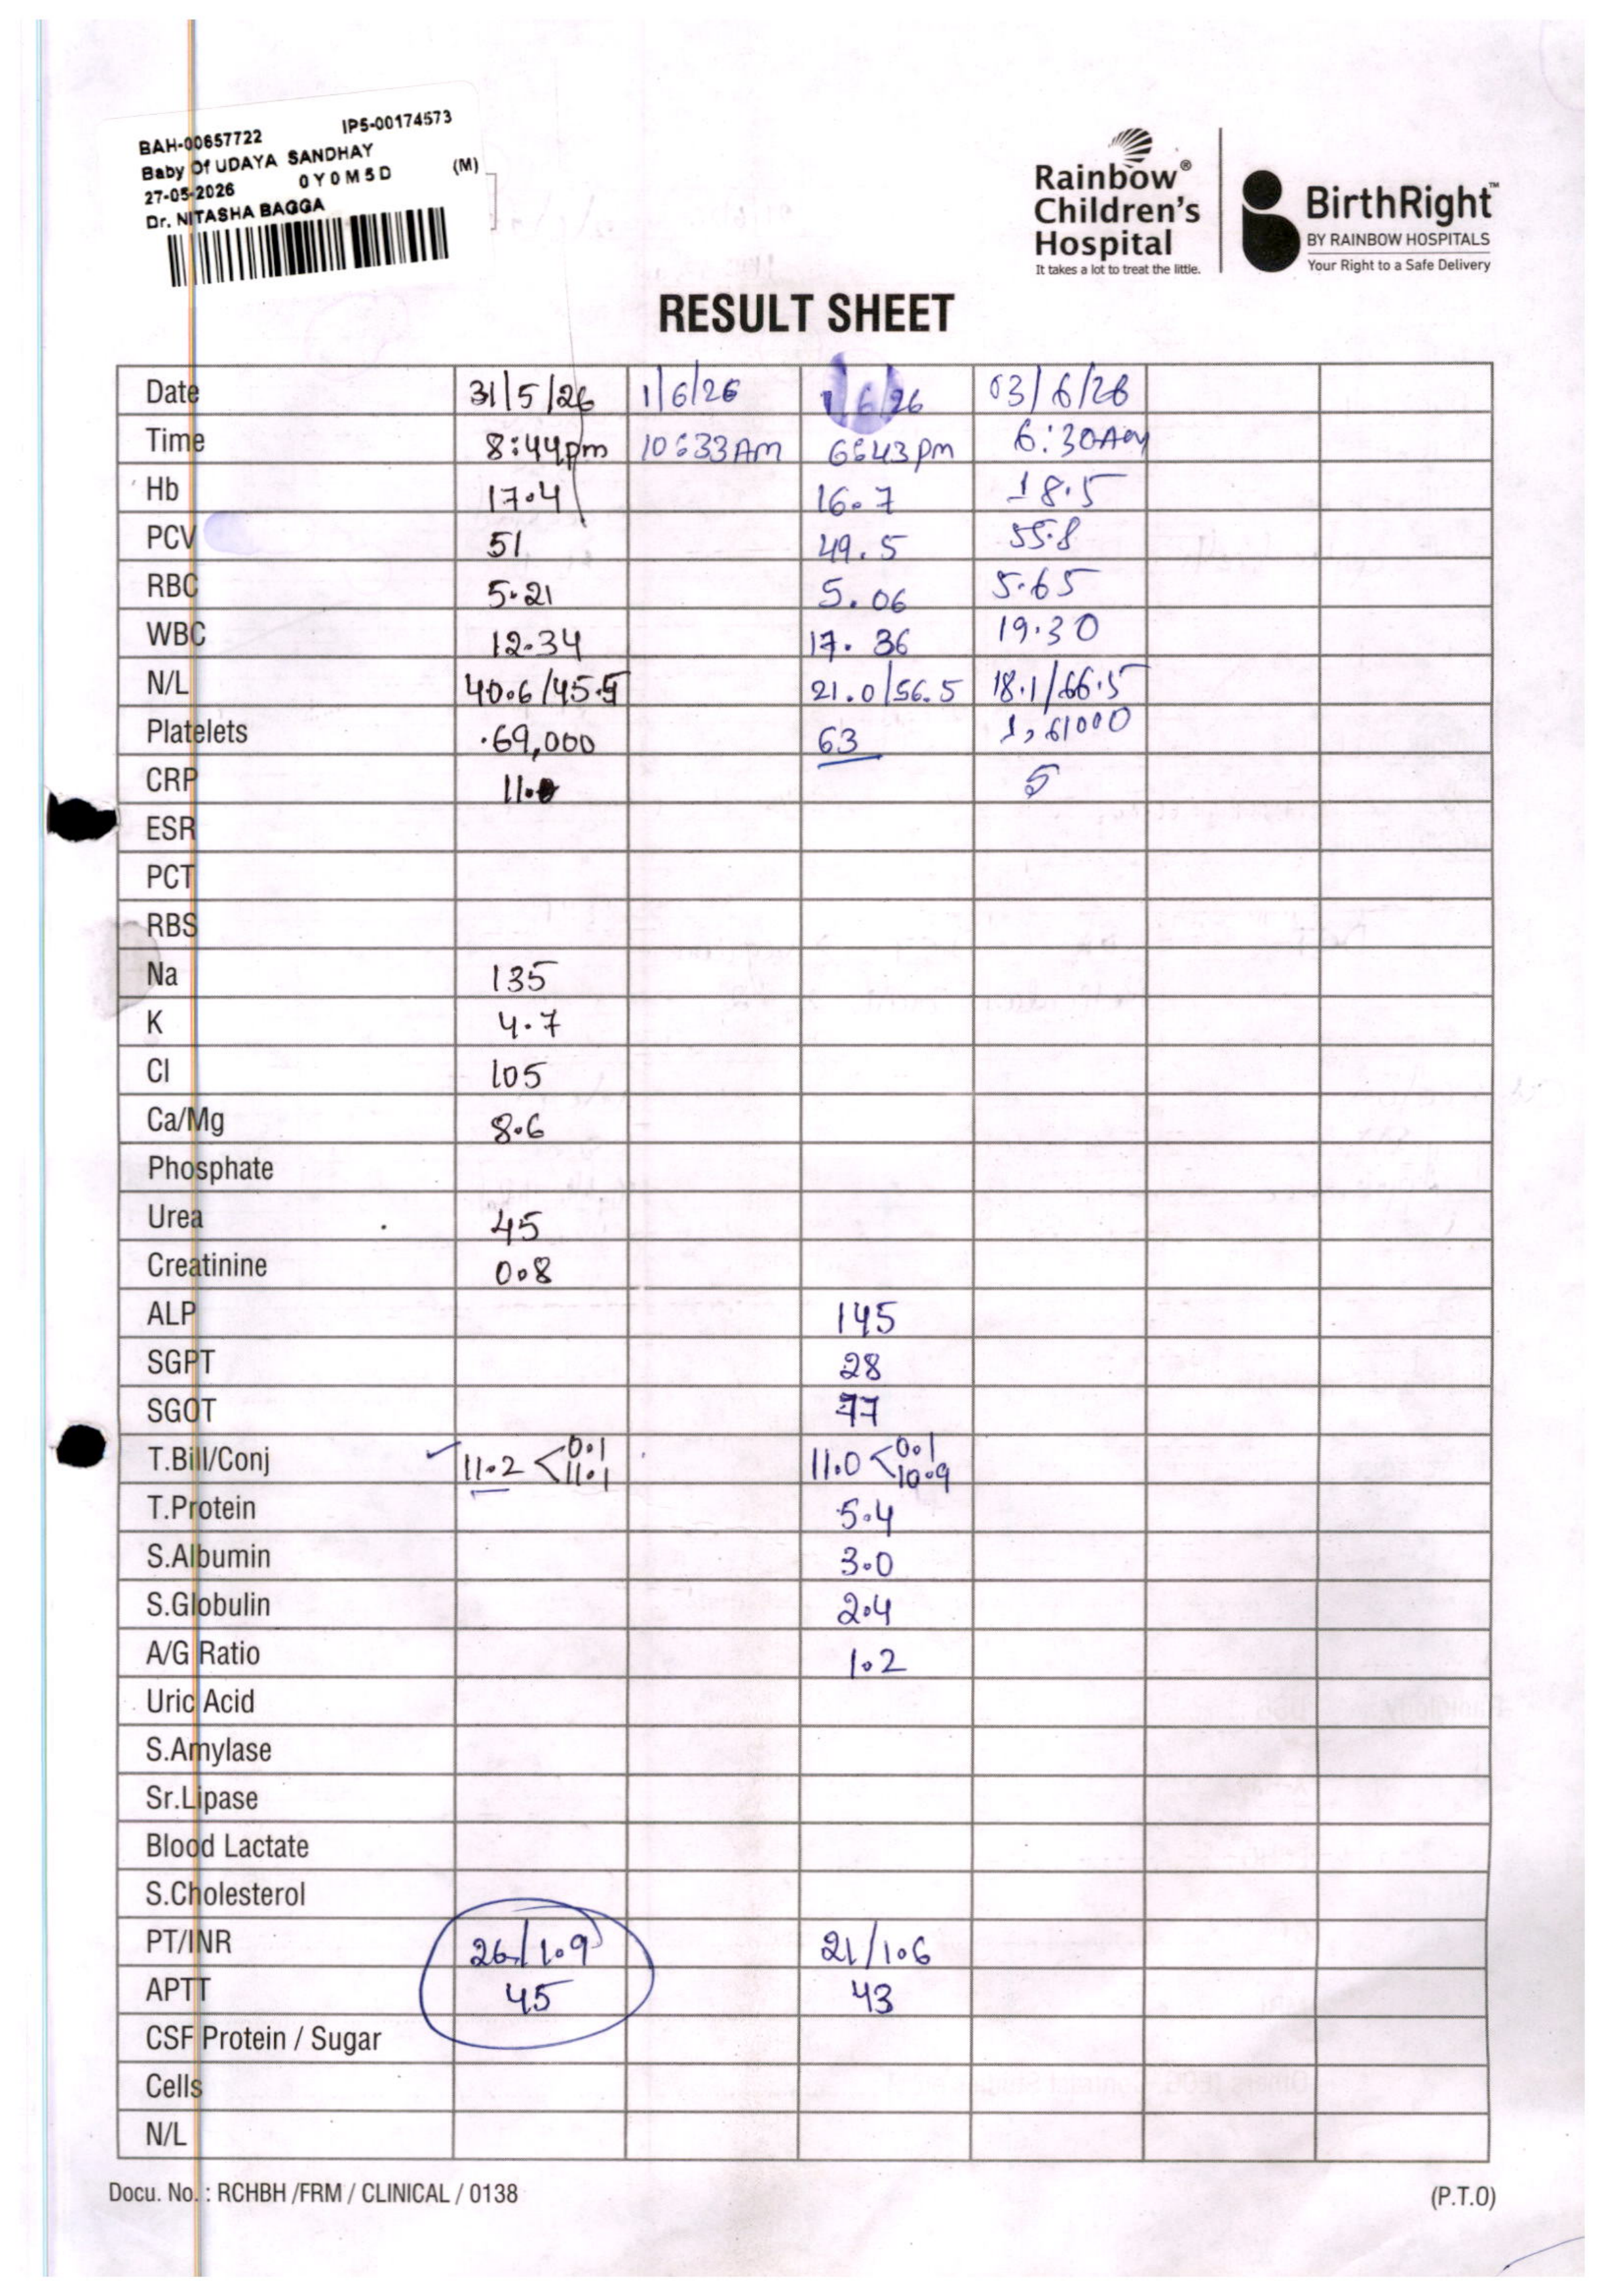 BAH-00657722 IP5-00174573
Baby Of UDAYA SANDHAY
27-05-2026 0Y0M5D (M)
Dr. NITASHA BAGGA
Rainbow®
Children's
Hospital
It takes a lot to treat the little.
BirthRight™
BY RAINBOW HOSPITALS
Your Right to a Safe Delivery
RESULT SHEET
Date 31/5/26 1/6/26 1/6/26 03/6/26
Time 8:44pm 10:33Am 6:43pm 6:30Am
Hb 17.4 16.7 18.5
PCV 51 49.5 55.8
RBC 5.21 5.06 5.65
WBC 12.34 17.36 19.30
N/L 40.6/45.5 21.0/56.5 18.1/66.5
Platelets 69,000 63 1,61000
CRP 11.0 5
ESR
PCT
RBS
Na 135
K 4.7
Cl 105
Ca/Mg 8.6
Phosphate
Urea 45
Creatinine 0.8
ALP 145
SGPT 28
SGOT 77
T.Bill/Conj 11.2 < 0.1 11.1 11.0 < 0.1 10.9
T.Protein 5.4
S.Albumin 3.0
S.Globulin 2.4
A/G Ratio 1.2
Uric Acid
S.Amylase
Sr.Lipase
Blood Lactate
S.Cholesterol
PT/INR 26/1.9 21/1.6
APTT 45 43
CSF Protein / Sugar
Cells
N/L
Docu. No. : RCHBH /FRM / CLINICAL / 0138 (P.T.O)